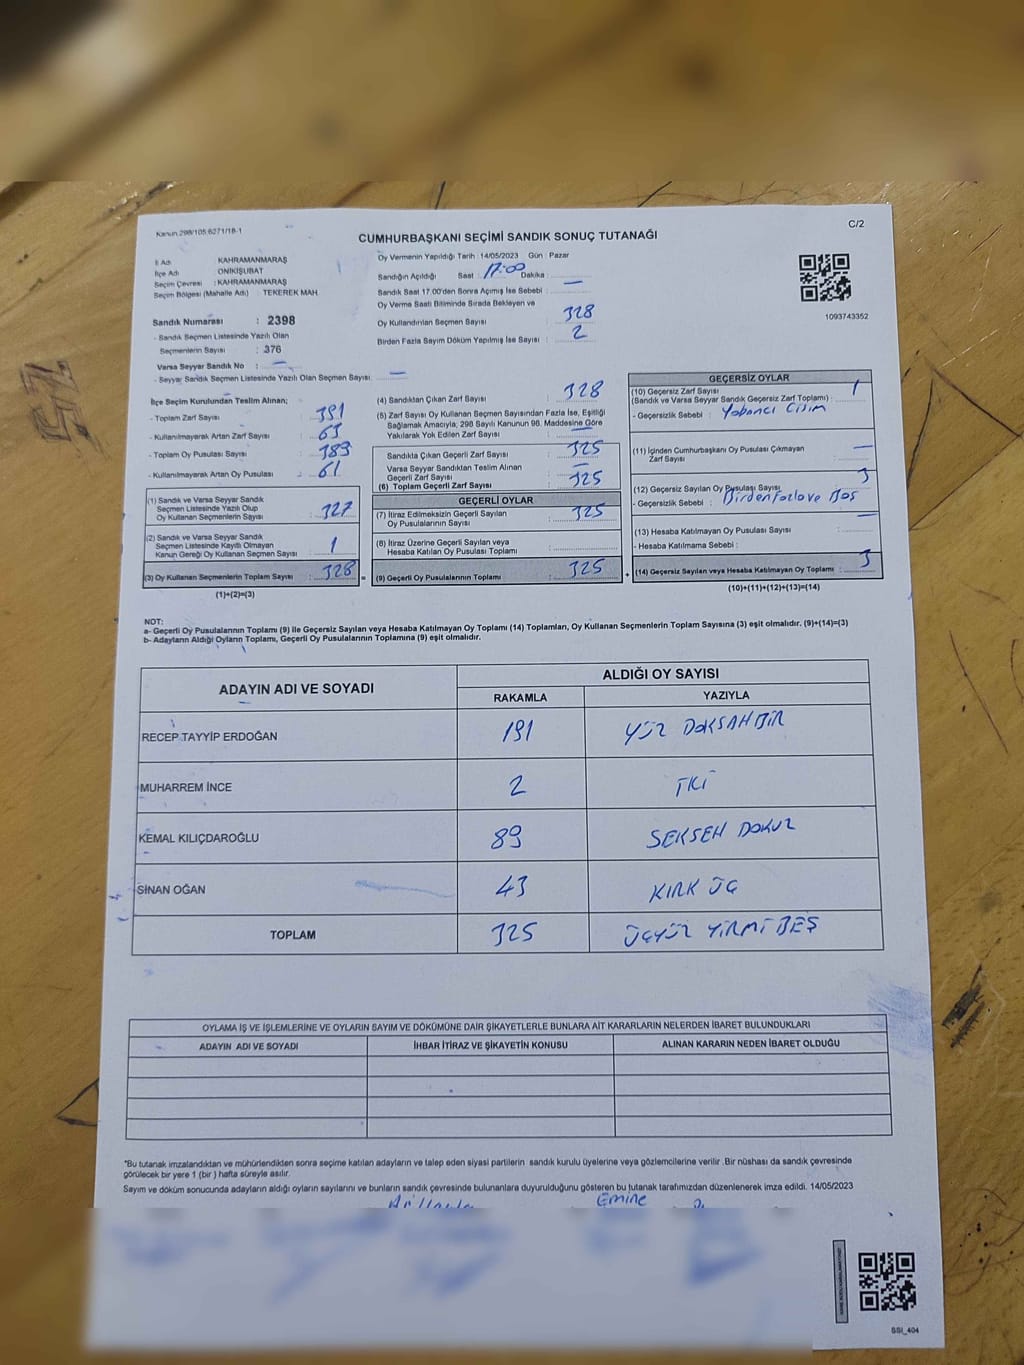 Kanun:298/105;6271/18-1
C/2
CUMHURBAŞKANI SEÇİMİ SANDIK SONUÇ TUTANAĞI
İl Adı KAHRAMANMARAŞ
İlçe Adı ONİKİŞUBAT
Seçim Çevresi : KAHRAMANMARAŞ
Seçim Bölgesi (Mahalle Adı) : TEKEREK MAH.
Sandık Numarası : 2398
- Sandık Seçmen Listesinde Yazılı Olan
Seçmenlerin Sayısı : 376
Varsa Seyyar Sandık No : —
- Seyyar Sandık Seçmen Listesinde Yazılı Olan Seçmen Sayısı: —
Oy Vermenin Yapıldığı Tarih : 14/05/2023 Gün : Pazar
Sandığın Açıldığı Saat : 17:00 Dakika :
Sandık Saat 17.00'den Sonra Açımış İse Sebebi : —
Oy Verme Saati Bitiminde Sırada Bekleyen ve
Oy Kullandırılan Seçmen Sayısı : 328
Birden Fazla Sayım Döküm Yapılmış İse Sayısı : 2
1093743352
İlçe Seçim Kurulundan Teslim Alınan;
- Toplam Zarf Sayısı : 391
- Kullanılmayarak Artan Zarf Sayısı : 63
- Toplam Oy Pusulası Sayısı : 389
- Kullanılmayarak Artan Oy Pusulası : 61
(1) Sandık ve Varsa Seyyar Sandık
Seçmen Listesinde Yazılı Olup
Oy Kullanan Seçmenlerin Sayısı : 327
(2) Sandık ve Varsa Seyyar Sandık
Seçmen Listesinde Kayıtlı Olmayan
Kanun Gereği Oy Kullanan Seçmen Sayısı : 1
(3) Oy Kullanan Seçmenlerin Toplam Sayısı : 328 =
(1)+(2)=(3)
(4) Sandıktan Çıkan Zarf Sayısı : 328
(5) Zarf Sayısı Oy Kullanan Seçmen Sayısından Fazla İse, Eşitliği
Sağlamak Amacıyla, 298 Sayılı Kanunun 98. Maddesine Göre
Yakılarak Yok Edilen Zarf Sayısı : —
Sandıkta Çıkan Geçerli Zarf Sayısı : 325
Varsa Seyyar Sandıktan Teslim Alınan
Geçerli Zarf Sayısı : —
(6) Toplam Geçerli Zarf Sayısı : 325
GEÇERLİ OYLAR
(7) İtiraz Edilmeksizin Geçerli Sayılan
Oy Pusulalarının Sayısı : 325
(8) İtiraz Üzerine Geçerli Sayılan veya
Hesaba Katılan Oy Pusulası Toplamı :
(9) Geçerli Oy Pusulalarının Toplamı : 325 +
GEÇERSİZ OYLAR
(10) Geçersiz Zarf Sayısı
(Sandık ve Varsa Seyyar Sandık Geçersiz Zarf Toplamı) : 1
- Geçersizlik Sebebi : Yabancı Cisim
(11) İçinden Cumhurbaşkanı Oy Pusulası Çıkmayan
Zarf Sayısı : —
(12) Geçersiz Sayılan Oy Pusulası Sayısı : 3
- Geçersizlik Sebebi : Birden Fazla ve Boş
(13) Hesaba Katılmayan Oy Pusulası Sayısı : —
- Hesaba Katılmama Sebebi :
(14) Geçersiz Sayılan veya Hesaba Katılmayan Oy Toplamı : 3
(10)+(11)+(12)+(13)=(14)
NOT:
a- Geçerli Oy Pusulalarının Toplamı (9) ile Geçersiz Sayılan veya Hesaba Katılmayan Oy Toplamı (14) Toplamları, Oy Kullanan Seçmenlerin Toplam Sayısına (3) eşit olmalıdır. (9)+(14)=(3)
b- Adayların Aldığı Oyların Toplamı, Geçerli Oy Pusulalarının Toplamına (9) eşit olmalıdır.
ADAYIN ADI VE SOYADI ALDIĞI OY SAYISI
RAKAMLA YAZIYLA
RECEP TAYYİP ERDOĞAN 191 YÜZ DOKSAN BİR
MUHARREM İNCE 2 İKİ
KEMAL KILIÇDAROĞLU 89 SEKSEN DOKUZ
SİNAN OĞAN 43 KIRK ÜÇ
TOPLAM 325 ÜÇYÜZ YİRMİ BEŞ
OYLAMA İŞ VE İŞLEMLERİNE VE OYLARIN SAYIM VE DÖKÜMÜNE DAİR ŞİKAYETLERLE BUNLARA AİT KARARLARIN NELERDEN İBARET BULUNDUKLARI
ADAYIN ADI VE SOYADI İHBAR İTİRAZ VE ŞİKAYETİN KONUSU ALINAN KARARIN NEDEN İBARET OLDUĞU
*Bu tutanak imzalandıktan ve mühürlendikten sonra seçime katılan adayların ve talep eden siyasi partilerin sandık kurulu üyelerine veya gözlemcilerine verilir. Bir nüshası da sandık çevresinde
görülecek bir yere 1 (bir ) hafta süreyle asılır.
Sayım ve döküm sonucunda adayların aldığı oyların sayılarını ve bunların sandık çevresinde bulunanlara duyurulduğunu gösteren bu tutanak tarafımızdan düzenlenerek imza edildi. 14/05/2023
Emine
SSI_404